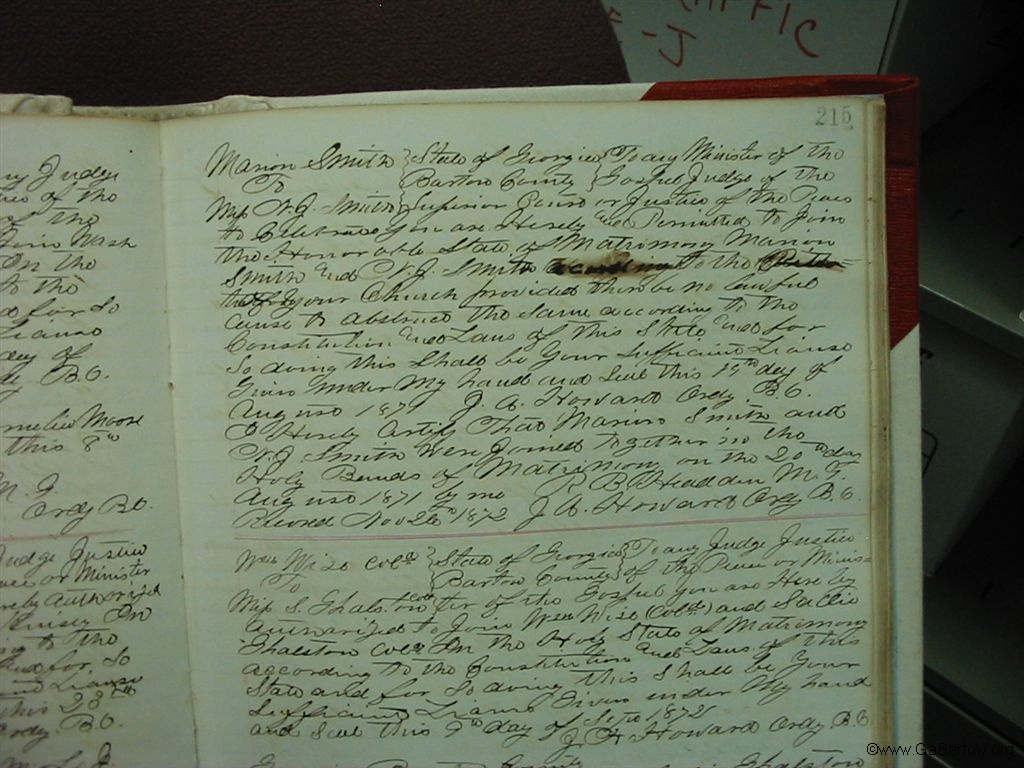 215
ny Judge
of the
of the
Wash
In the
to the
for So
day of
B.C.
Moore
this 8th
M. G.
Ordy B.C.
Judge Justice
or Minister
Authorized
In
to the
and for, So
this 23rd
Ordy. B.C.
Marion Smith } State of Georgia } To any Minister of the
To Bartow County } Gospel Judge of the
Miss N. J. Smith } Superior Court or Justice of the Peace
to Celebrate You are Hereby and Permitted to Join
the Honorable State of Matrimony Marion
Smith and N. J. Smith to the
of your Church provided there be no lawful
cause to abstruct the same according to the
Constitution and Laws of this State and for
So doing this Shall be Your Sufficient License
Given Under My hand and Seal this 19th day of
August 1871 J. A. Howard Ordy. B.C.
I Hereby Certify That Marion Smith and
N. J. Smith Were Joined Together in the
Holy Bonds of Matrimony on the 20th day
August 1871 by me R. B. Headden M. G.
Record Nov 26th 1872 J. A. Howard Ordy B.C.
Wm Wise Cold } State of Georgia } To any Judge Justice
To Bartow County } of the Peace or Minis-
Miss S. Ghalston Cold ter of the Gospel you are Here by
Authorized to Join Wm Wise (Cold) and Sallie
Ghalston Cold In the Holy State of Matrimony
according to the Constitution and Laws of this
State and for So doing this Shall be Your
Sufficient License Given under My hand
and Seal this 9th day of Sept 1872
J. A. Howard Ordy B.C.
Ghalston
©www.GaBartow.org